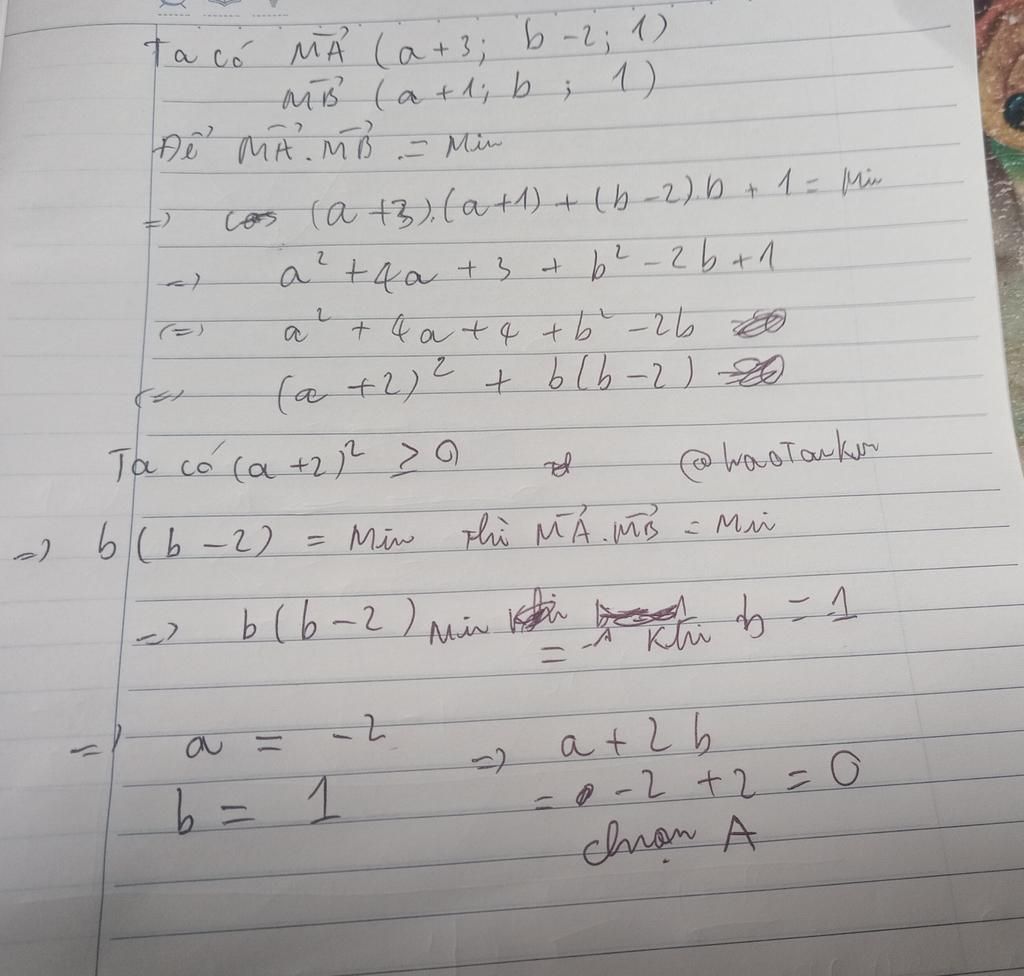 Ta có MA→ (a+3; b-2; 1)
MB→ (a+1; b; 1)
Để MA→.MB→ = Min
=> (a+3).(a+1)+(b-2).b+1= Min
=> a²+4a+3+b²-2b+1
(=) a²+4a+4+b²-2b
(=) (a+2)²+b(b-2)
Ta có (a+2)² ≥ 0
=> b(b-2) = Min thì MA→.MB→ = Min
=> b(b-2) Min = -1 khi b = 1
=> a = -2 => a+2b
b = 1 = -2+2=0
chọn A